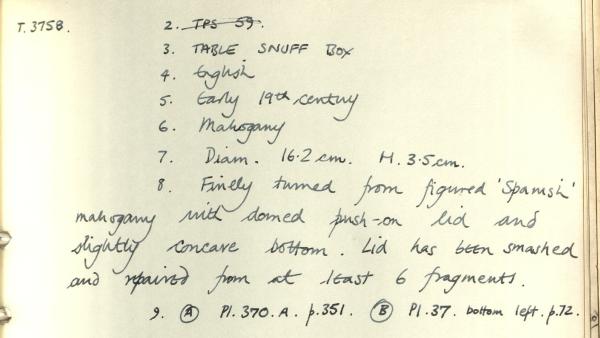 T.3758. 2. TPS 59.
3. TABLE SNUFF BOX
4. English
5. Early 19th century
6. Mahogany
7. Diam. 16.2 cm. H. 3.5 cm.
8. Finely turned from figured 'Spanish'
mahogany with domed push-on lid and
slightly concave bottom. Lid has been smashed
and repaired from at least 6 fragments.
9. Ⓐ Pl. 370. A. p.351. Ⓑ Pl. 37. bottom left. p.72.